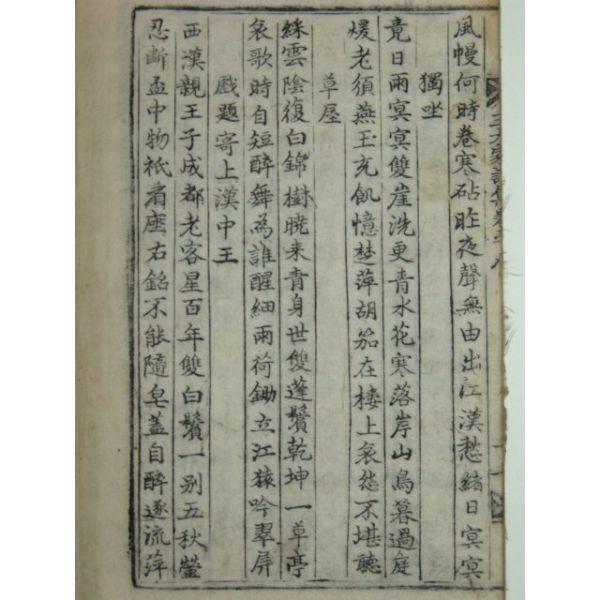 風幔何時卷寒砧昨夜聲無由出江漢愁緒日冥冥
獨坐
竟日雨冥冥雙崖洗更青水花寒落岸山鳥暮過庭
煖老須燕玉充飢憶楚萍胡笳在樓上哀怨不堪聽
草屋
綵雲陰復白錦樹曉来青身世雙蓬鬢乾坤一草亭
哀歌時自短醉舞為誰醒細雨荷鋤立江猿吟翠屏
戲題寄上漢中王
西漢親王子成都老客星百年雙白鬢一別五秋螢
忍斷盃中物祇看座右銘不能隨皂蓋自醉逐流萍